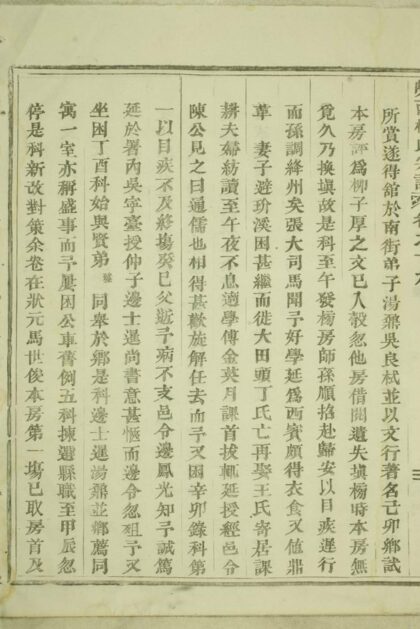 所賞遂得館於南街弟子湯鼎吳良栻並以文行著名己卯鄉試
本房評爲柳子厚之文已入彀忽他房借閱遺失塡榜時本房無
覓久乃換塡故是科至午發榜房師孫順掐赴歸安以目疾遲行
而孫調絳州矣張大司馬聞予好學延爲西賓頗得衣食又値鼎
革 妻子避玠溪困甚繼而徙大田頭丁氏亡再娶王氏寄居課
耕夫婦紡讀至午夜不息適學傅金英月課首拔輒延授經邑令
陳公見之曰通儒也相得甚歡旋解任去而予又困辛卯錄科第
一以目疾不及終塲癸巳父逝予病不支邑令邊鳳光知予誠篤
延於署丙吳宇臺授仲子邊士暹尚書意甚愜而邊令忽殂予又
坐困丁酉科始與賢弟 同舉於鄉是科邊士暹湯鼎並鄉薦同
寓一室亦稱盛事而予屢困公車舊例五科揀選縣職至甲辰忽
停是科新改對策余卷在狀元馬世俊本房第一塲已取房首及